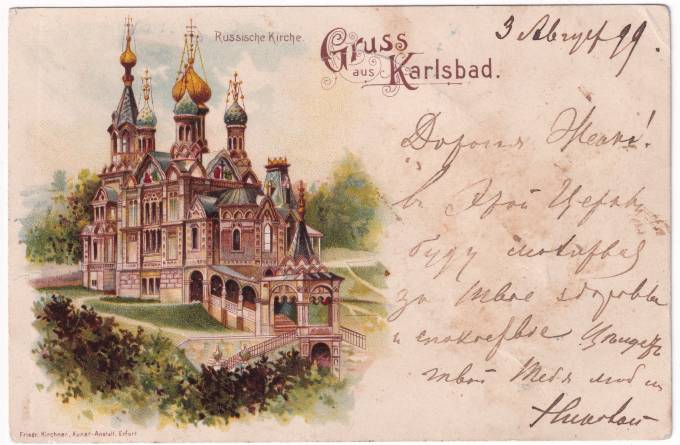 Russische Kirche.
Gruss
aus
Karlsbad.
3 Август 99.
Дорогая Женя!
в этой Церкви
буду молиться
за твое здоровье
и спокойствие.
твой тебя
Николай
Friedr. Kirchner, Kunst-Anstalt, Erfurt